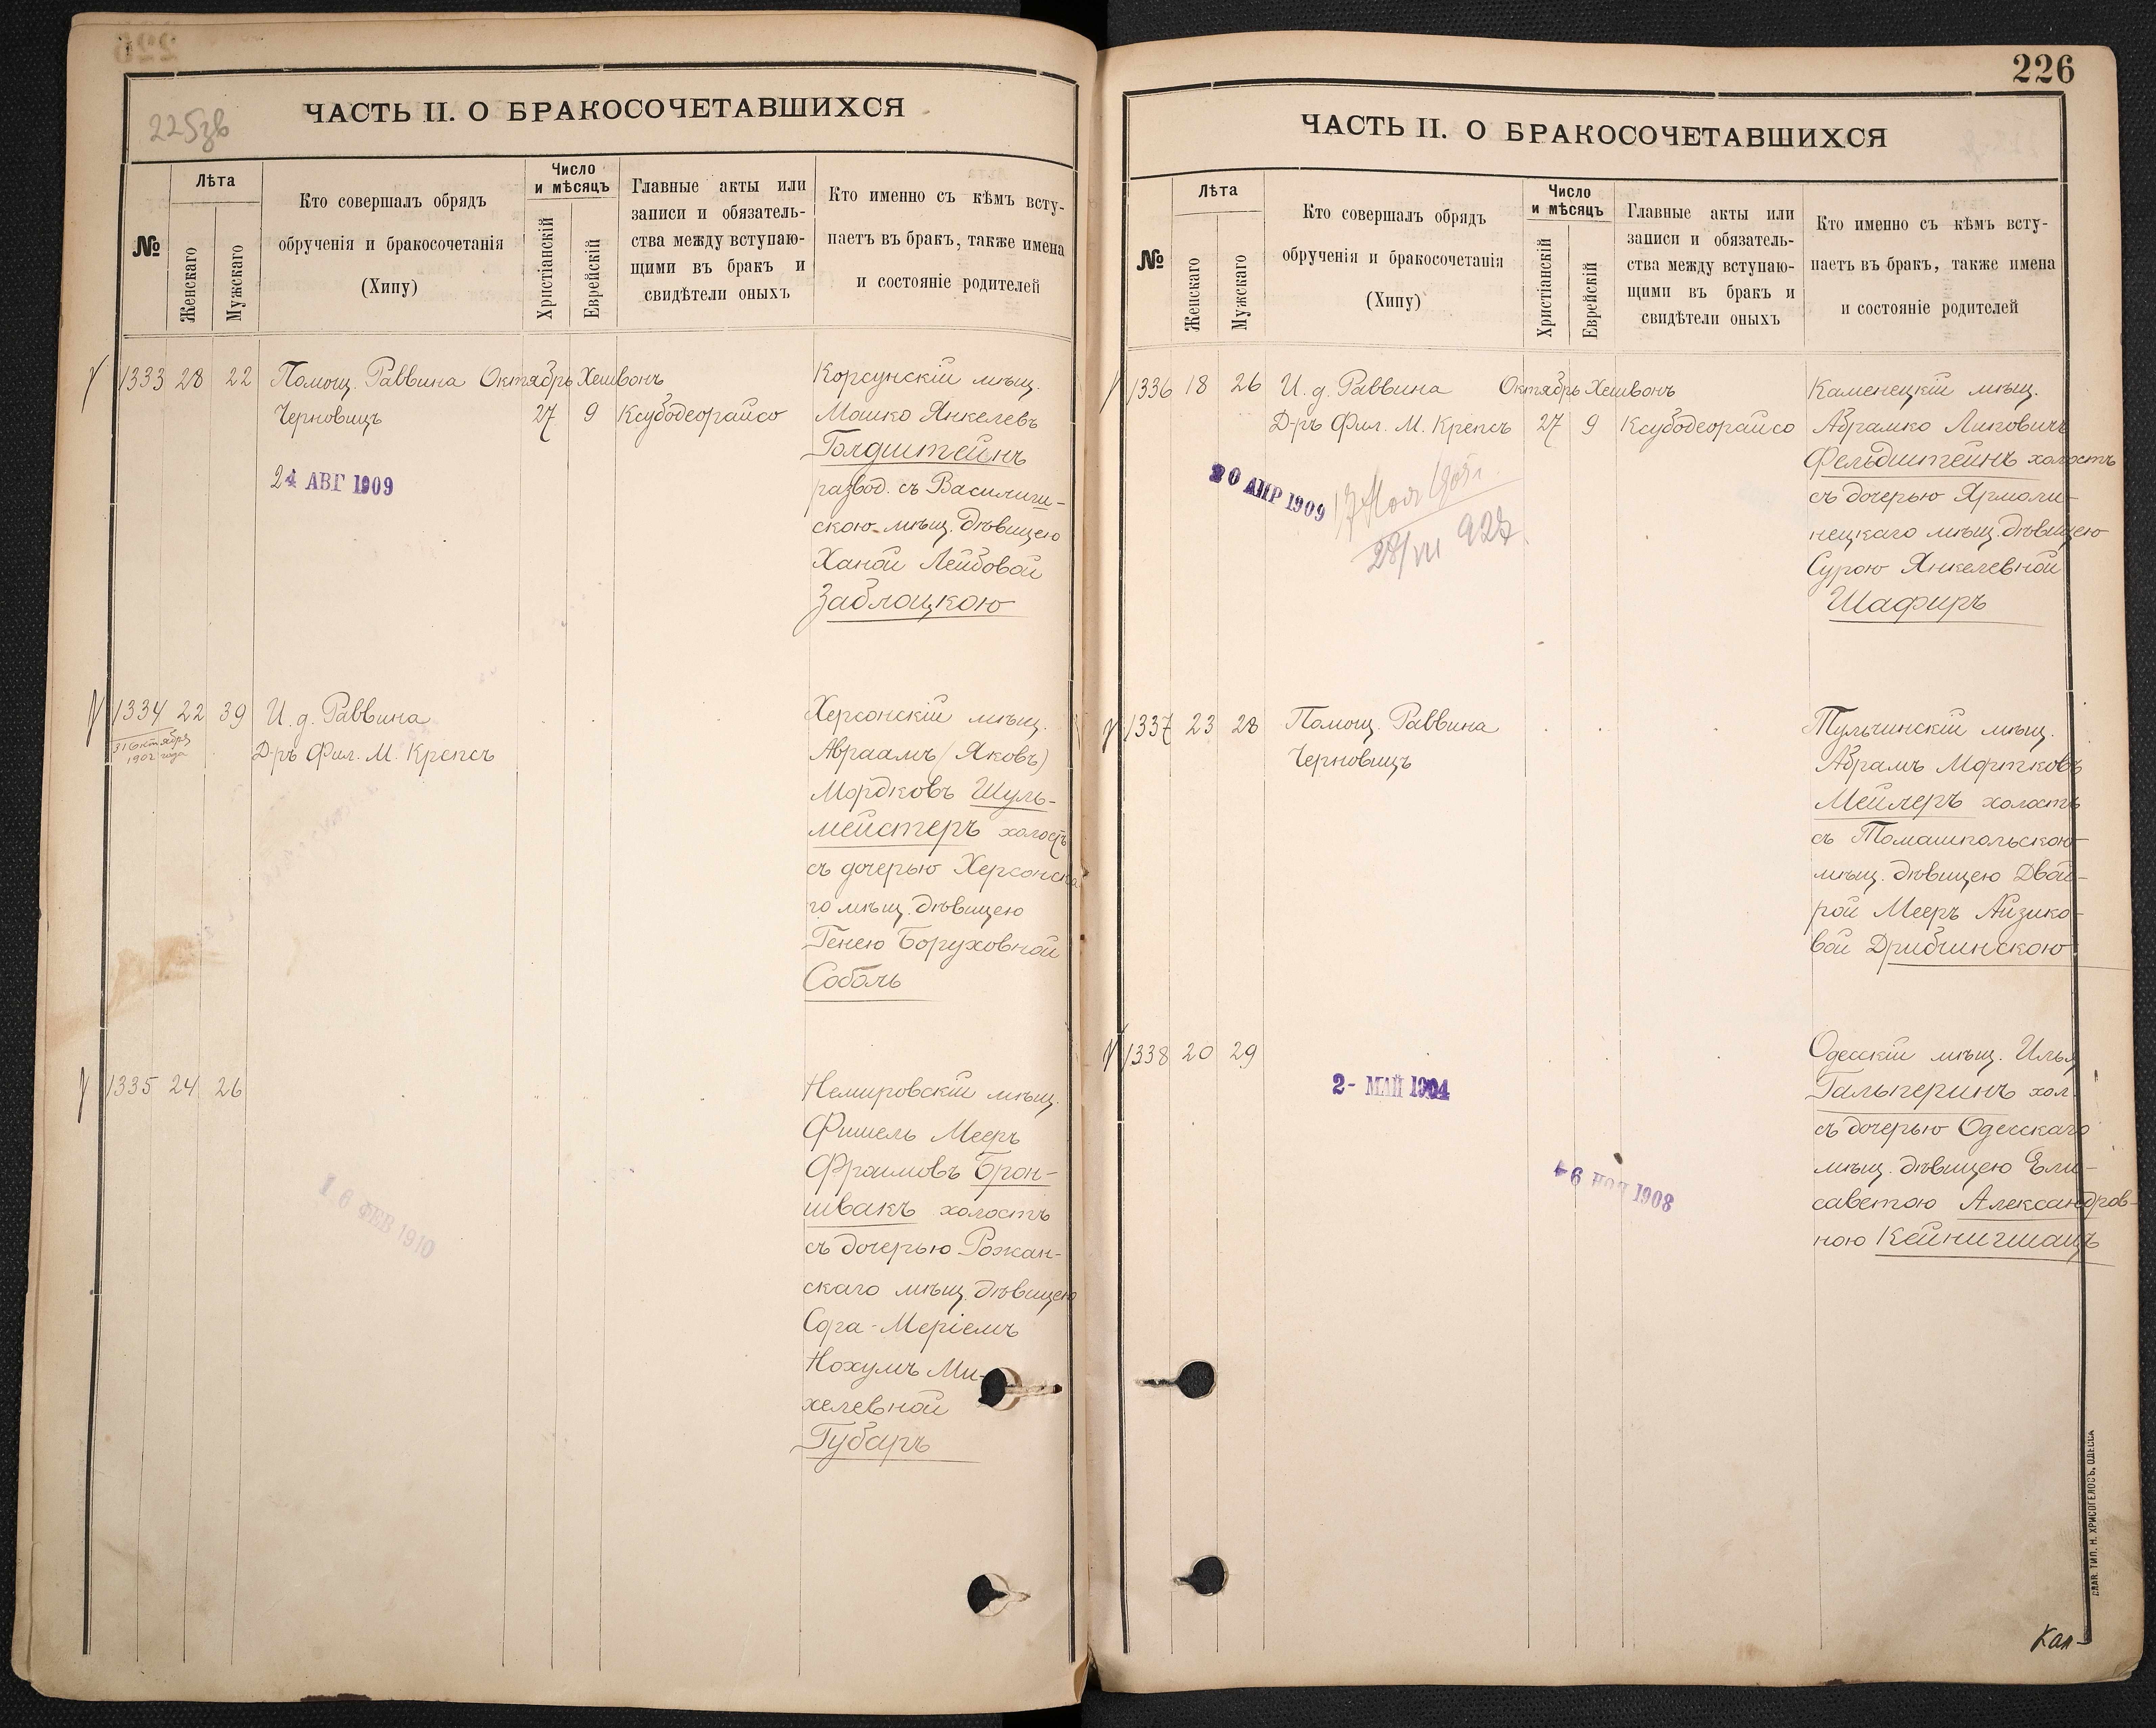 225зв
ЧАСТЬ II. О БРАКОСОЧЕТАВШИХСЯ
№
Лѣта
Женскаго
Мужскаго
Кто совершалъ обрядъ
обрученія и бракосочетанія
(Хипу)
Число
и мѣсяцъ
Христіанскій
Еврейскій
Главные акты или
записи и обязатель-
ства между вступаю-
щими въ бракъ и
свидѣтели оныхъ
Кто именно съ кѣмъ всту-
паетъ въ бракъ, также имена
и состояніе родителей
1333 28 22 Помощ. Раввина Октябрь Хешвонъ
Черновицъ 27 9 Ксубодеорайсо
24 АВГ 1909
Корсунскій мѣщ.
Мошко Янкелевъ
Голдштейнъ
развод. съ Василиш-
скою мѣщ. дѣвицею
Ханой Лейбовой
Заблоцкою
1334 22 39 И. д. Раввина
31 октября
1902 года
Д-ръ Фил. М. Крепсъ
Херсонскій мѣщ.
Авраамъ (Яковъ)
Мордковъ Шуль-
мейстеръ холостъ
съ дочерью Херсонска
го мѣщ. дѣвицею
Генею Боруховной
Соболь
1335 24 26
16 ФЕВ 1910
Немировскій мѣщ.
Фишель Мееръ
Фроимовъ Брон-
швакъ холостъ
съ дочерью Рожан-
скаго мѣщ. дѣвицею
Сора-Меріемъ
Нохумъ Ми-
хелевной
Губаръ
226
ЧАСТЬ II. О БРАКОСОЧЕТАВШИХСЯ
№
Лѣта
Женскаго
Мужскаго
Кто совершалъ обрядъ
обрученія и бракосочетанія
(Хипу)
Число
и мѣсяцъ
Христіанскій
Еврейскій
Главные акты или
записи и обязатель-
ства между вступаю-
щими въ бракъ и
свидѣтели оныхъ
Кто именно съ кѣмъ всту-
паетъ въ бракъ, также имена
и состояніе родителей
1336 18 26 И. д. Раввина Октябрь Хешвонъ
Д-ръ Фил. М. Крепсъ 27 9 Ксубодеорайсо
20 АПР 1909
28/VII 927
Каменецкій мѣщ.
Абрамко Липовичъ
Фельдштейнъ холостъ
съ дочерью Ярмоли-
нецкаго мѣщ. дѣвицею
Сурою Янкелевной
Шафиръ
1337 23 28 Помощ. Раввина
Черновицъ
Тульчинскій мѣщ.
Абрамъ Мортковъ
Мейлеръ холостъ
съ Томашпольскою
мѣщ. дѣвицею Двой-
рой Мееръ Айзико-
вой Дрибинскою
1338 20 29
2- МАЙ 1904
6 НОЯ 1908
Одесскій мѣщ. Илья
Гальперинъ хол.
съ дочерью Одесскаго
мѣщ. дѣвицею Ели-
саветою Александров-
ною Кейнигшацъ
СЛАВ. ТИП. Н. ХРИСОГЕЛОСЪ, ОДЕССА
Кан-